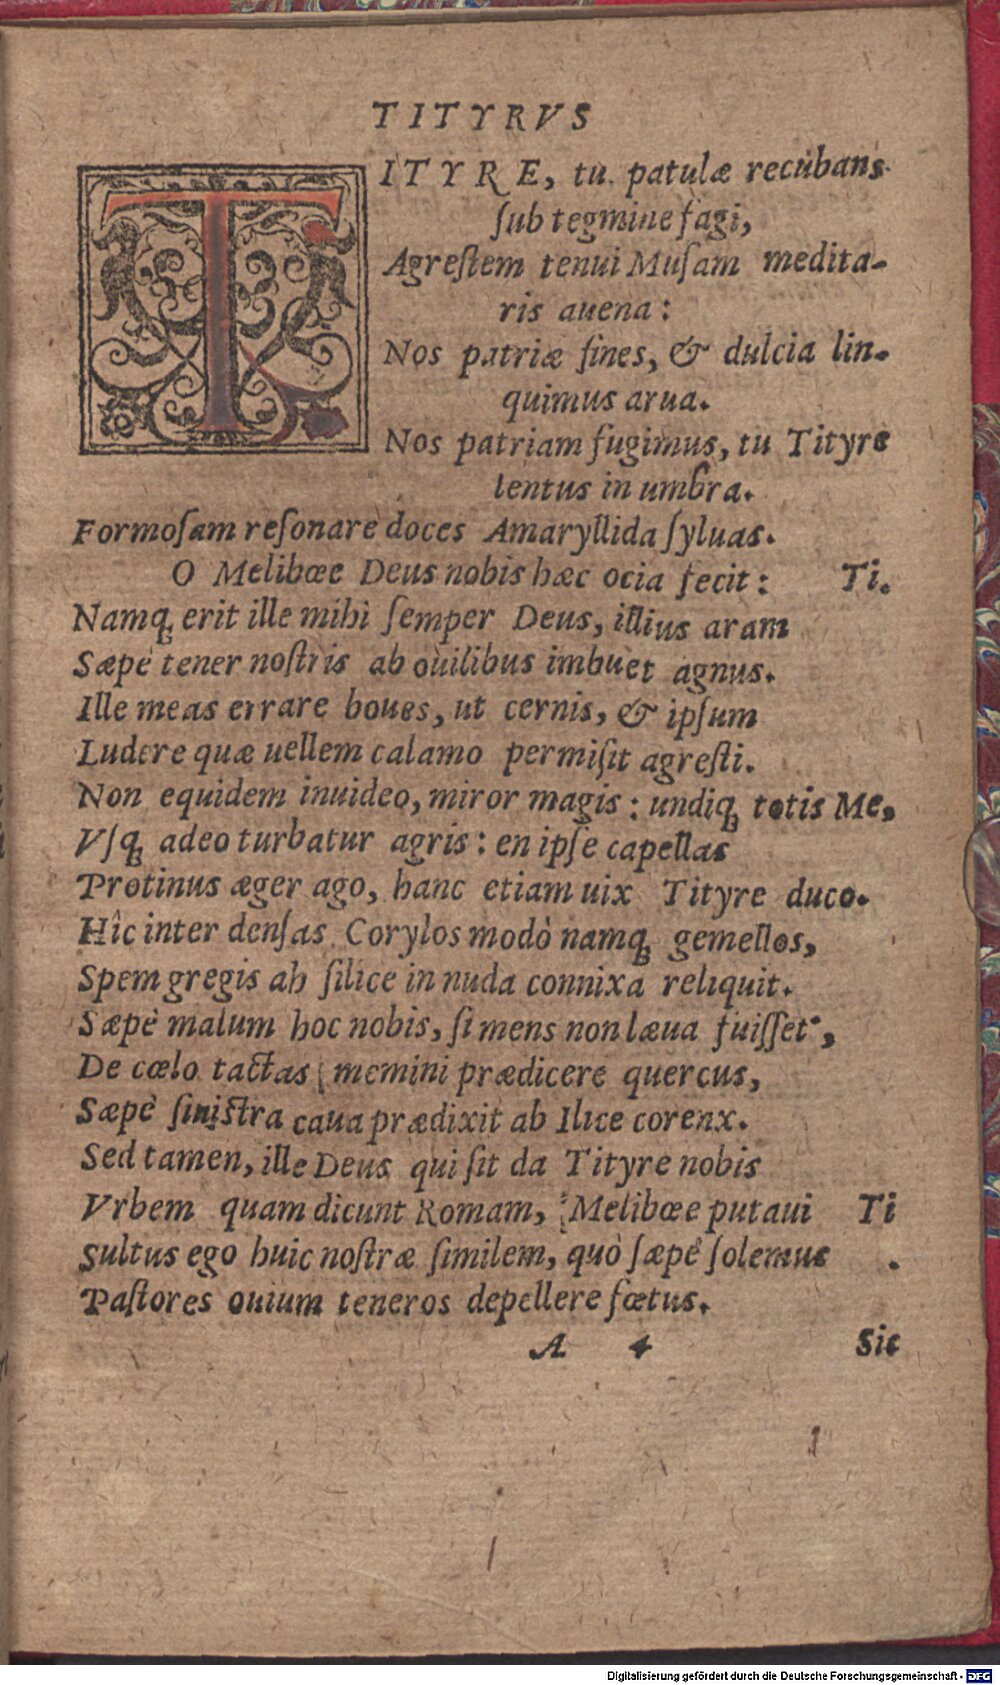 TITYRVS
TITYRE, tu patulæ recubans
ſub tegmine fagi,
Agreſtem tenui Muſam medita-
ris auena:
Nos patriæ fines, & dulcia lin-
quimus arua.
Nos patriam fugimus, tu Tityre
lentus in umbra.
Formoſam reſonare doces Amaryllida ſyluas.
O Melibœe Deus nobis hæc ocia fecit: Ti.
Namq; erit ille mihi ſemper Deus, illius aram
Sæpè tener noſtris ab ouilibus imbuet agnus.
Ille meas errare boues, ut cernis, & ipſum
Ludere quæ uellem calamo permiſit agreſti.
Non equidem inuideo, miror magis: undiq; totis Me,
Vſq; adeo turbatur agris: en ipſe capellas
Protinus æger ago, hanc etiam uix Tityre duco.
Hîc inter denſas Corylos modò namq; gemellos,
Spem gregis ah ſilice in nuda connixa reliquit.
Sæpè malum hoc nobis, ſi mens non læua fuiſſet,
De cœlo tactas memini prædicere quercus,
Sæpè ſiniſtra caua prædixit ab Ilice corenx.
Sed tamen, ille Deus qui ſit da Tityre nobis
Vrbem quam dicunt Romam, Melibœe putaui Ti
Sultus ego huic noſtræ ſimilem, quò ſæpè ſolemus .
Paſtores ouium teneros depellere fœtus.
A 4 Sic
Digitalisierung gefördert durch die Deutsche Forschungsgemeinschaft - DFG